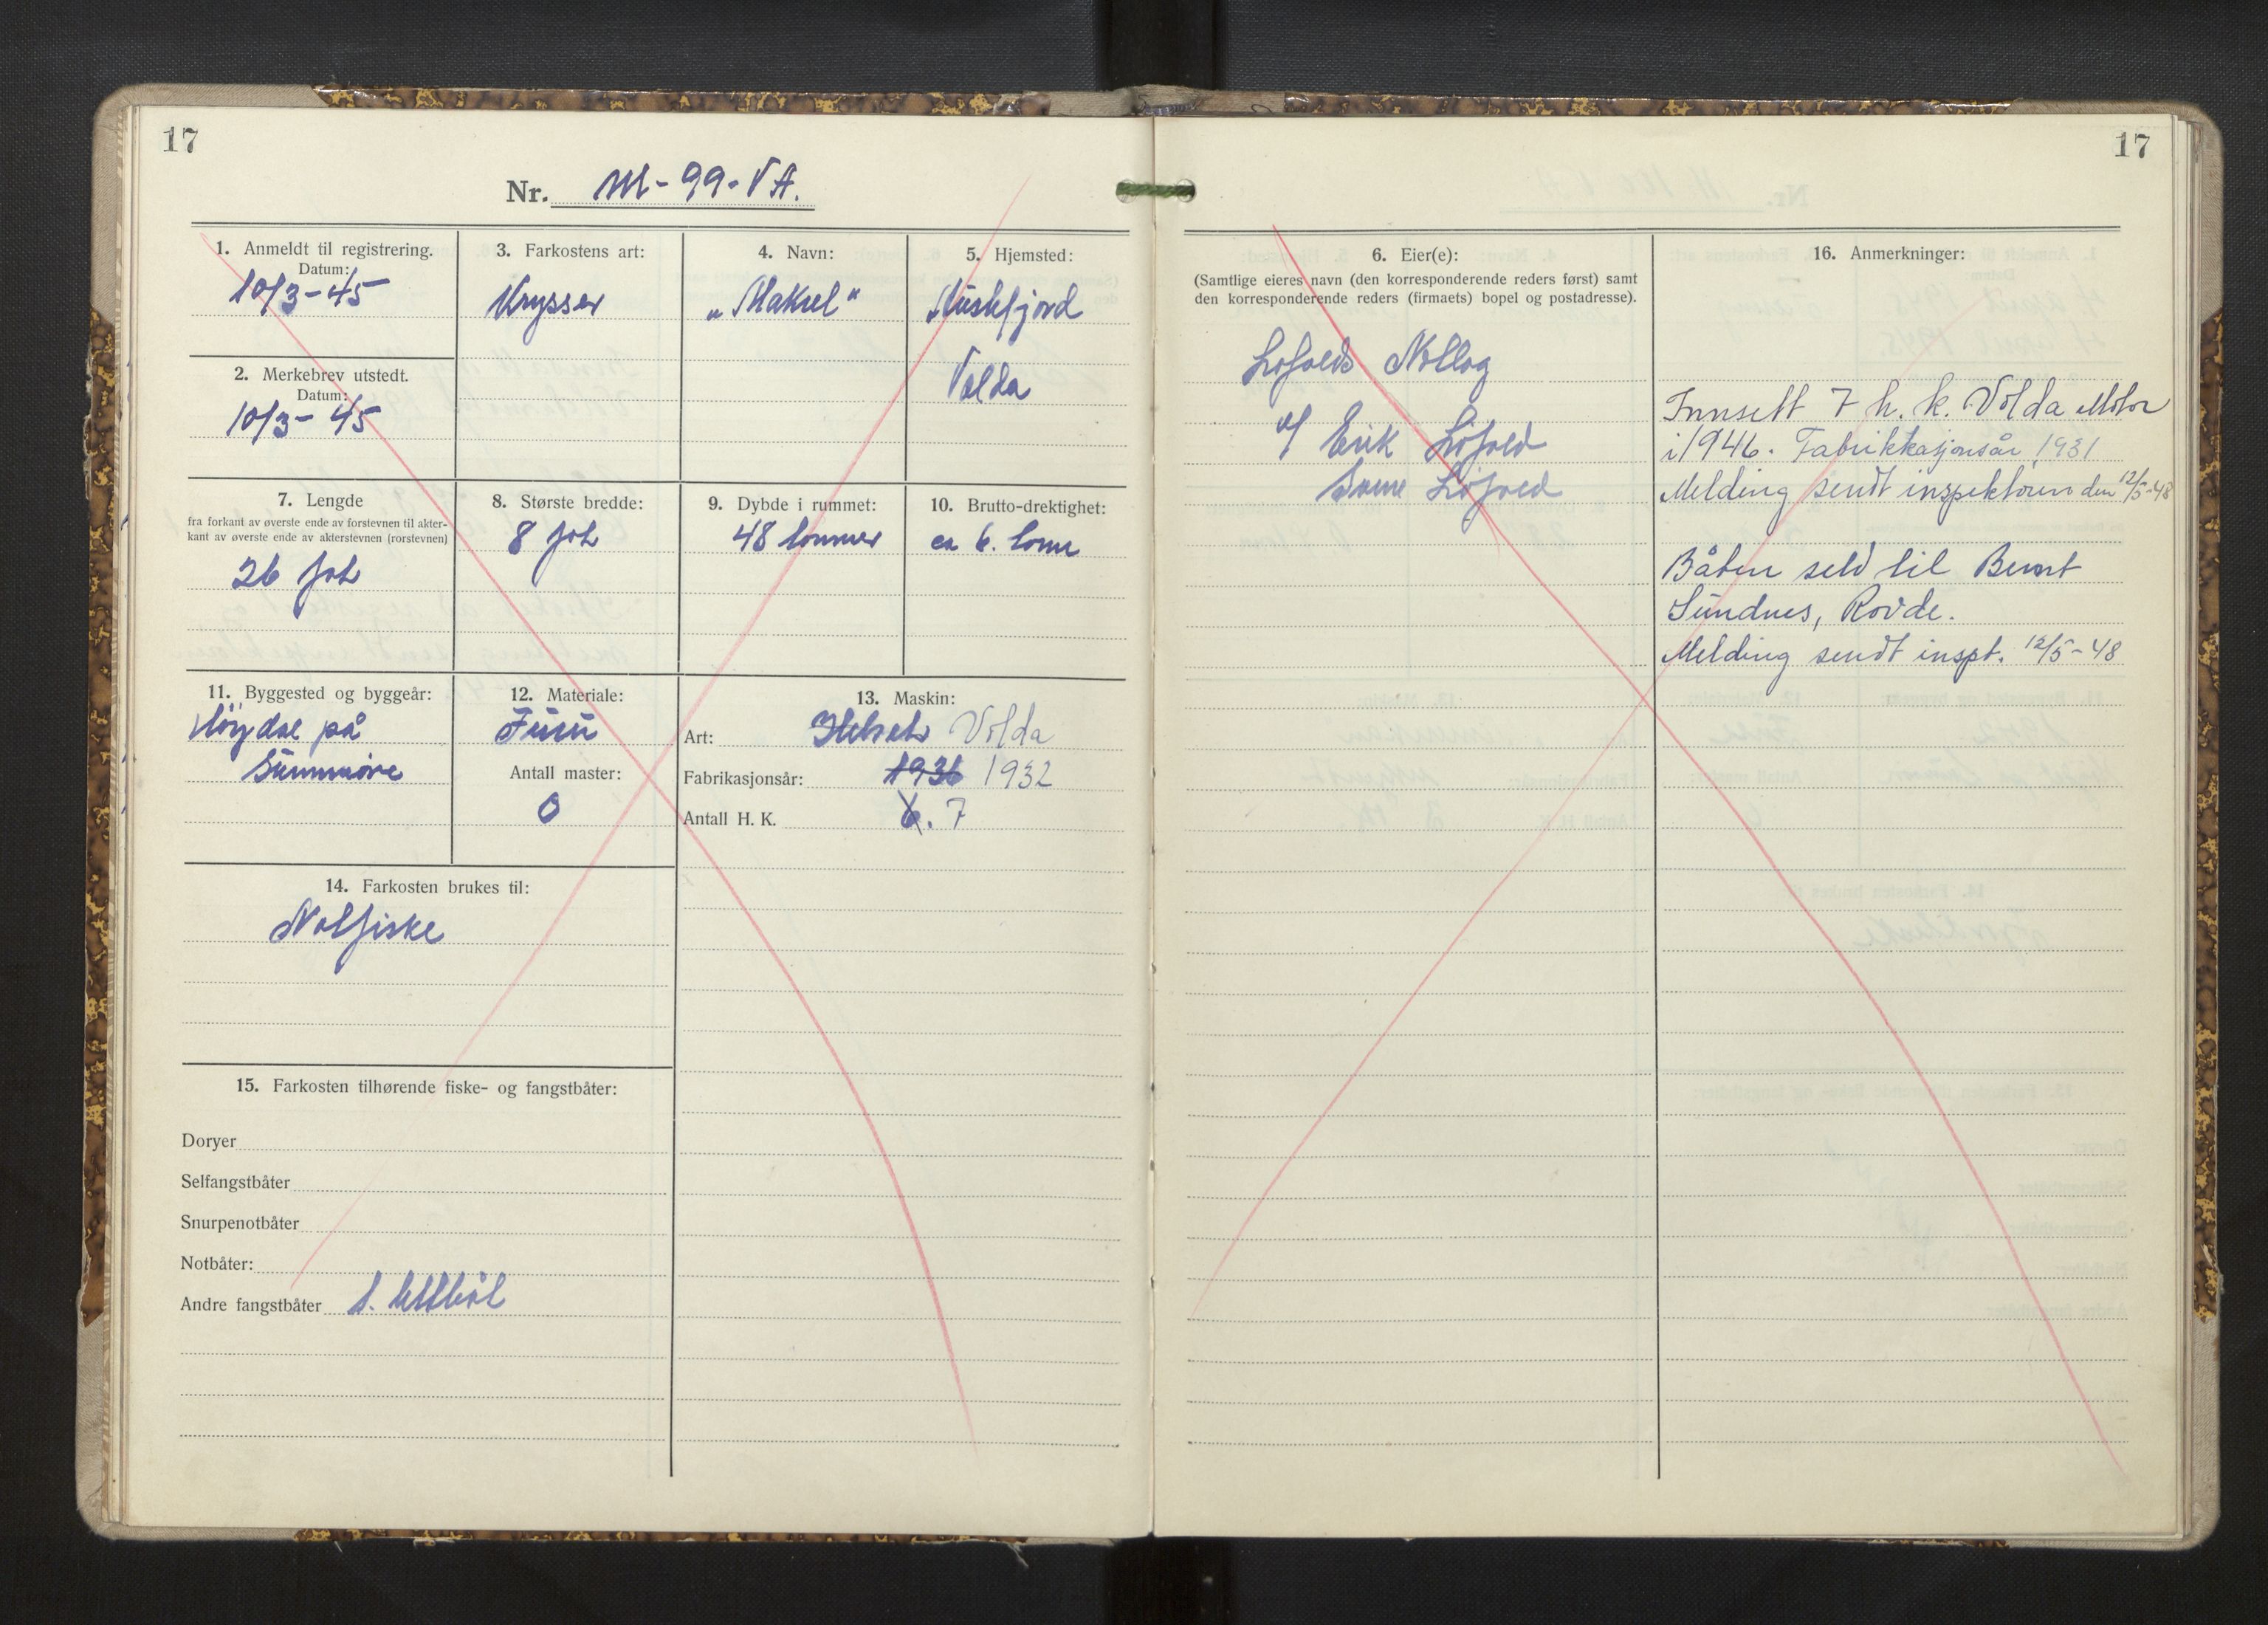 17
Nr. M-99-VA.
1. Anmeldt til registrering.
Datum:
10/3-45
2. Merkebrev utstedt.
Datum:
10/3-45
3. Farkostens art:
Krysser
4. Navn:
„Maksel"
5. Hjemsted:
Austefjord
Volda
7. Lengde
fra forkant av øverste ende av forstevnen til akter-
kant av øverste ende av akterstevnen (rorstevnen)
26 fot
8. Største bredde:
8 fot
9. Dybde i rummet:
48 tommer
10. Brutto-drektighet:
ca 6. tonn
11. Byggested og byggeår:
på
Sunnmøre
12. Materiale:
Furu
Antall master:
0
13. Maskin:
Art: Volda
Fabrikasjonsår: 1936 1932
Antall H. K. 6. 7
14. Farkosten brukes til:
Notfiske
15. Farkosten tilhørende fiske- og fangstbåter:
Doryer
Selfangstbåter
Snurpenotbåter
Notbåter:
Andre fangstbåter 1. lettbåt
17
6. Eier(e):
(Samtlige eieres navn (den korresponderende reders først) samt
den korresponderende reders (firmaets) bopel og postadresse).
Løfolds Notlag
v/ Erik Løfold
Løfold
16. Anmerkninger:
Innsett 7 h. k. Volda Motor
i 1946. Fabrikkasjonsår 1931
Melding sendt inspektøren den 12/5-48
Båten seld til Bernt
Sundnes, Rovde.
Melding sendt inspt. 12/5-48